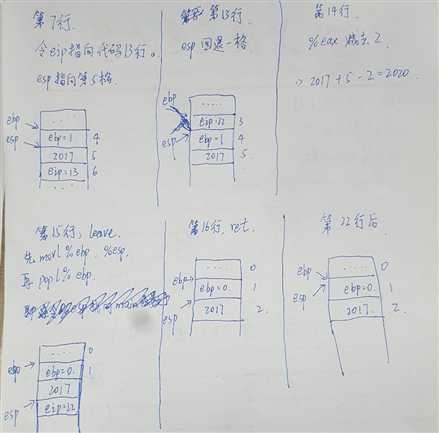 第7行
令eip指向代码13行。
esp指向第5格
ebp
esp
.....
ebp=1 4
2017 5
eip=13 6
第13行
esp 回退一格
ebp
esp
.....
3
ebp=1 4
2017 5
第14行
%eax 减去2
2017+5-2=2020
第15行, leave
先 movl %ebp, %esp
再 popl %ebp.
ebp
esp
.... 0
ebp=0. 1
2017
eip=22
第16行, ret
ebp
esp
.... 0
ebp=0. 1
2017 2.
第22行后
ebp
esp
.... 0
ebp=0 1
2017. 2.